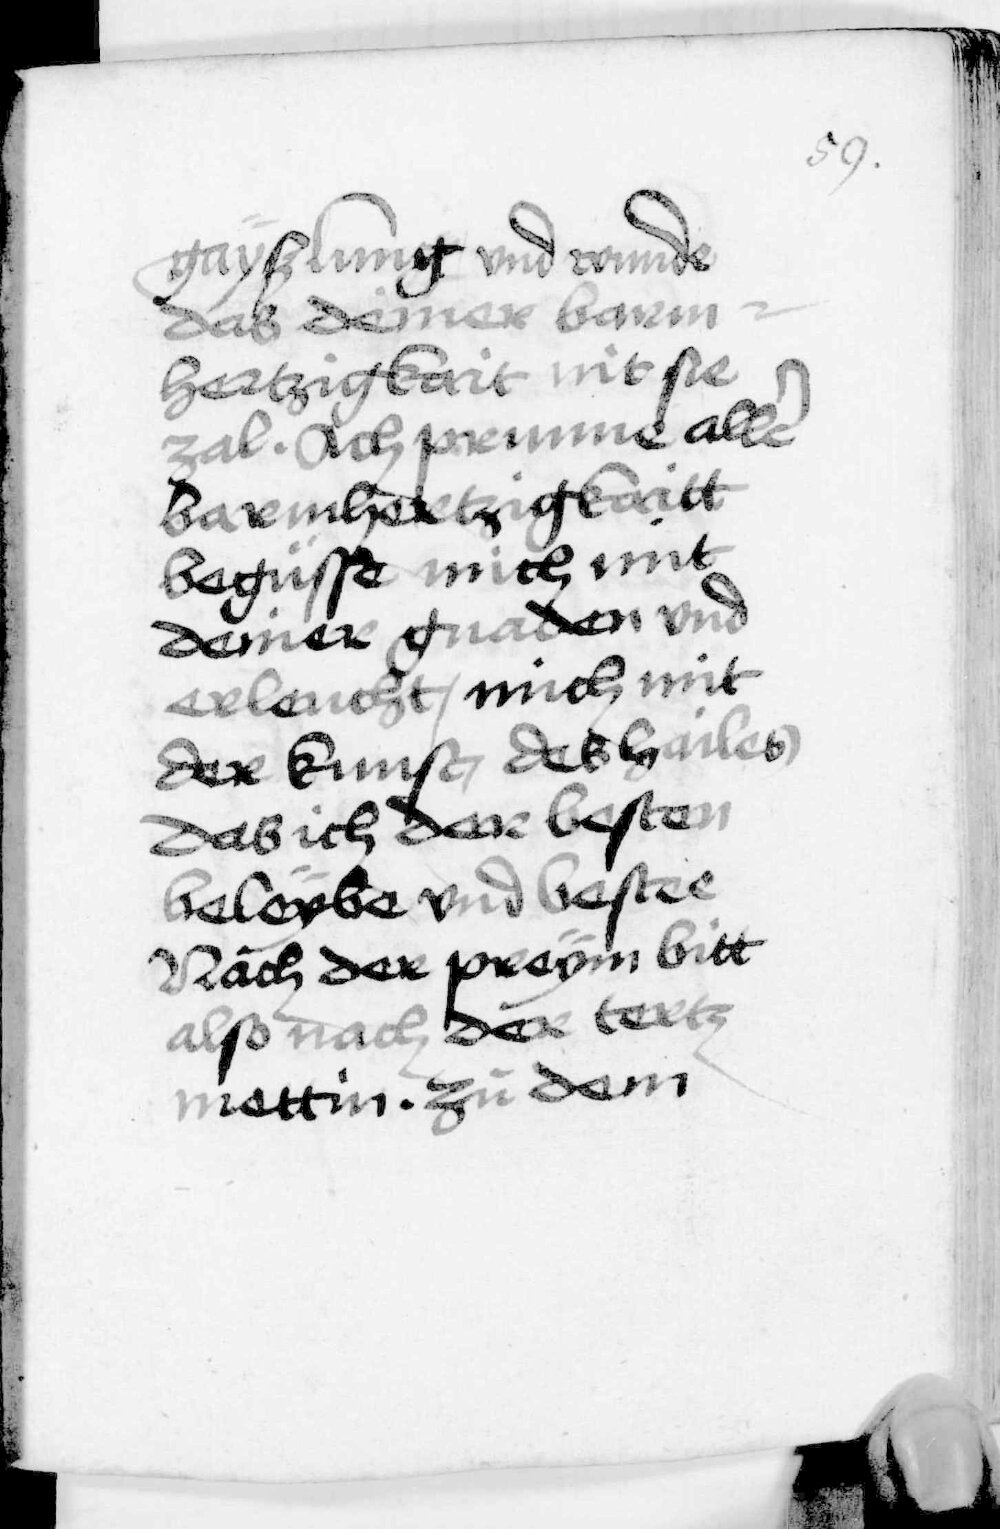 59.
gayßlung vnd wunde
das deiner barm-
hertzigkait nit ste
zal. Ach prunne aller
barmhertzigkaitt
begüsse mich mit
deiner gnaden vnd
erleucht mich mit
der kunst des hailes
das ich der besten
beleÿbe vnd bestee
Nach der preÿm bitt
also nach der tertz
mettin. zu dem